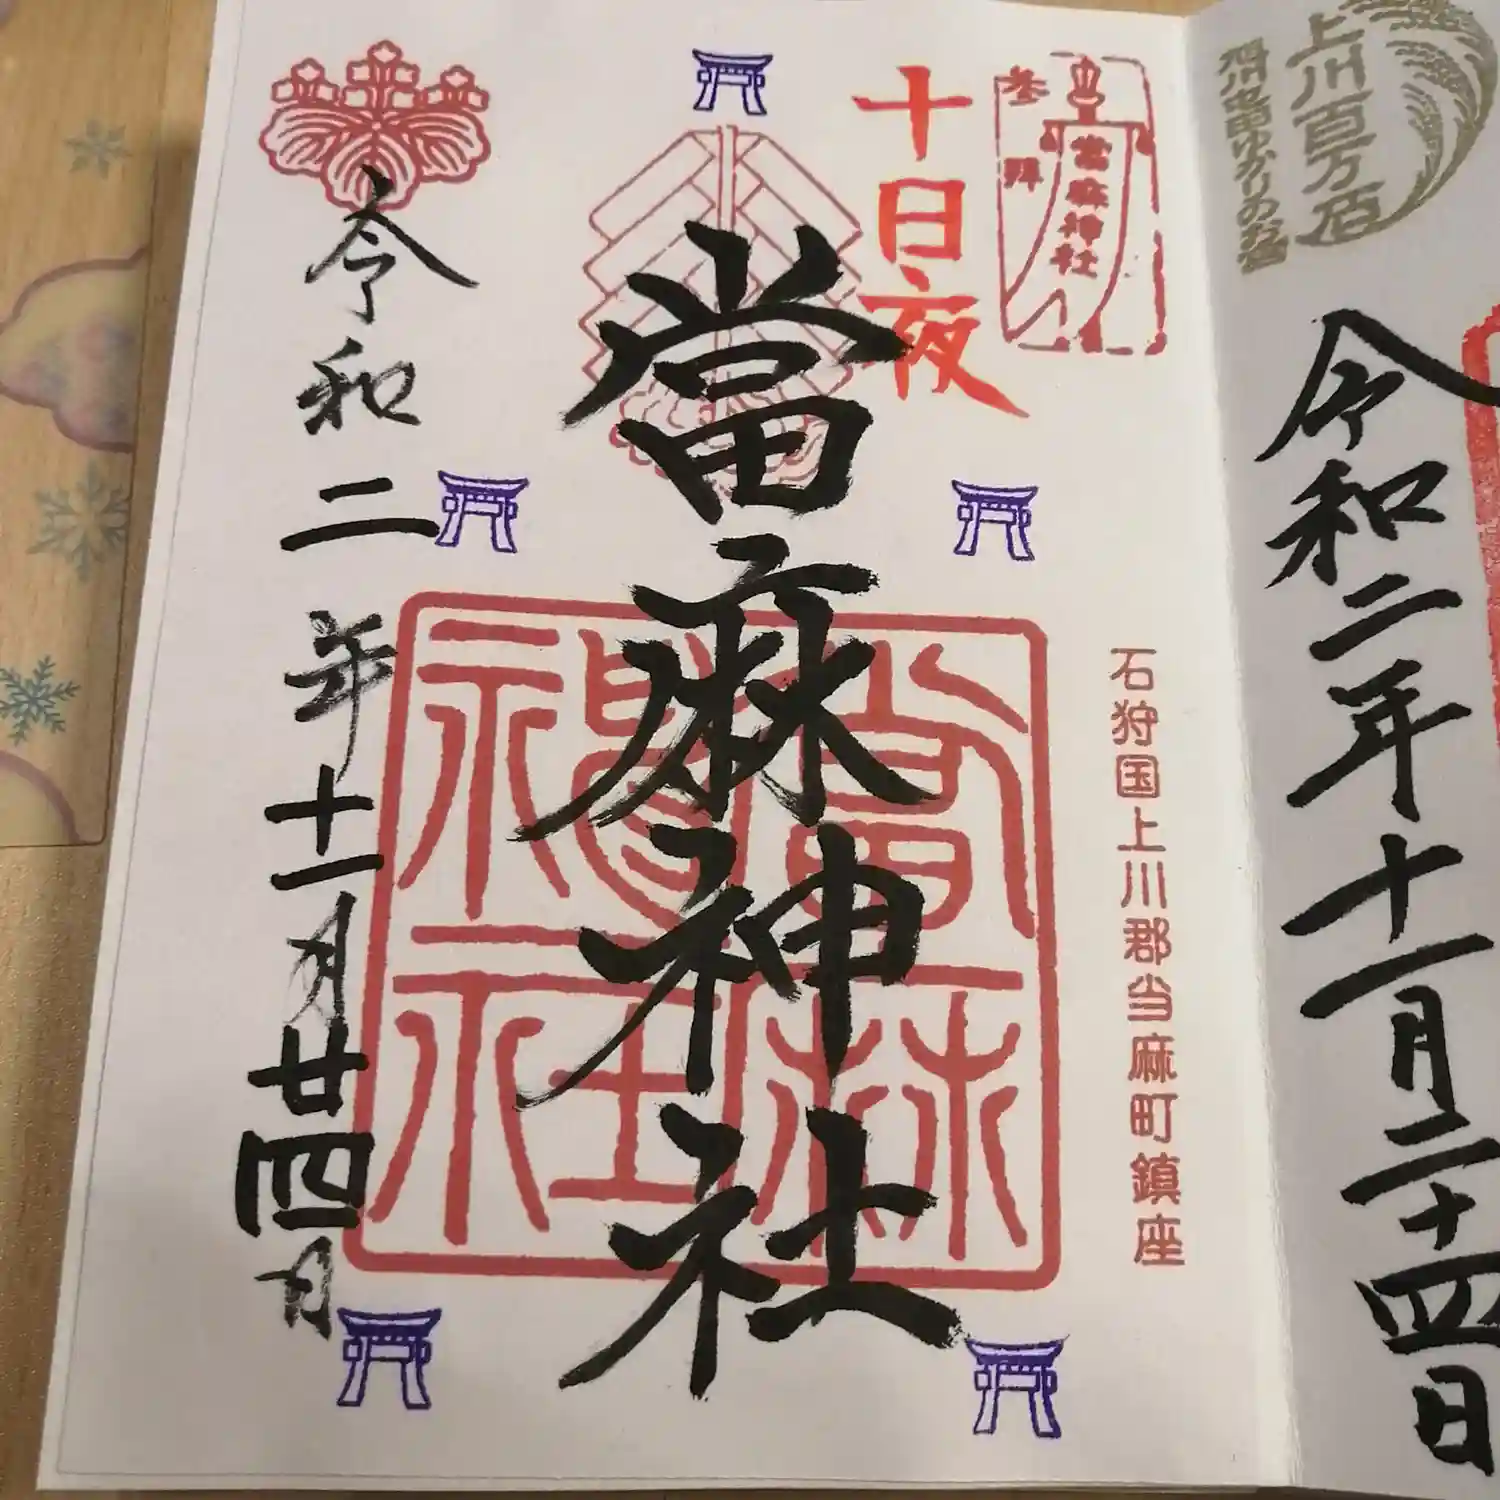 上川百万石
旭川忠別ゆかりのお宮
令和二年十一月二十四日
参拝
當麻神社
十日夜
石狩国上川郡当麻町鎮座
當麻神社
當麻神社
令和二年十一月廿四日